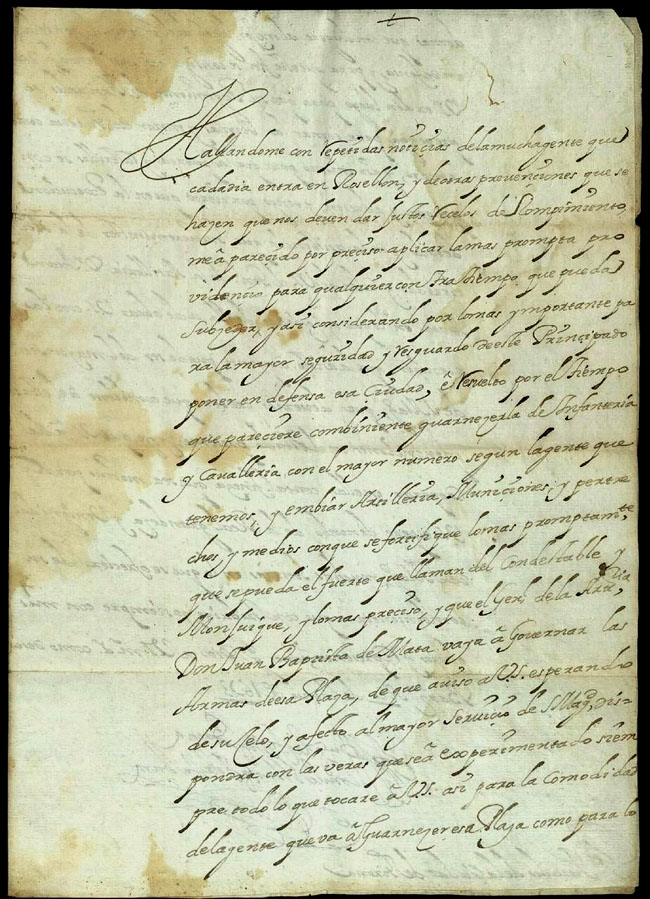 Hallandome con repetidas noticias delamuchagente que
cadadia entra en Rosellon, y deotras prevençiones que se
hazen que nos deven dar Justos recelos de Rompimiento,
me â parecido por preçiso aplicar lamas prompta pro
videncia para qualquier contratiempo que pueda
Subzeder, y asi considerando por lomas ymportante pa
ra la mayor seguridad y resguardo deeste Prinçipado
poner en defensa esa Çiudad, ê resuelto por el tiempo
que pareciere combiniente guarnezerla de Infanteria
y Cavalleria con el mayor numero segun lagente que
tenemos, y embiar Artilleria, Muniçiones, y pertre
chos, y medios conque sefortifique lomas promptamte,
que sepueda el fuerte que llaman del Condestable y
Monjuique, y lomas preciso, y que el Genl. de la Artria,
Don Juan Baptista de Mata vaya â Governar las
Armas deesa Plaza, de que aviso a V.S. esperando
de su zelo, y afecto al mayor servicio de S Magd. dis-
pondra con las veras que se â experimentado siem
pre, todo lo que tocare â V.S. asi para la Comodidad
delagente que va â Guarnezer esa Plaza como para lo